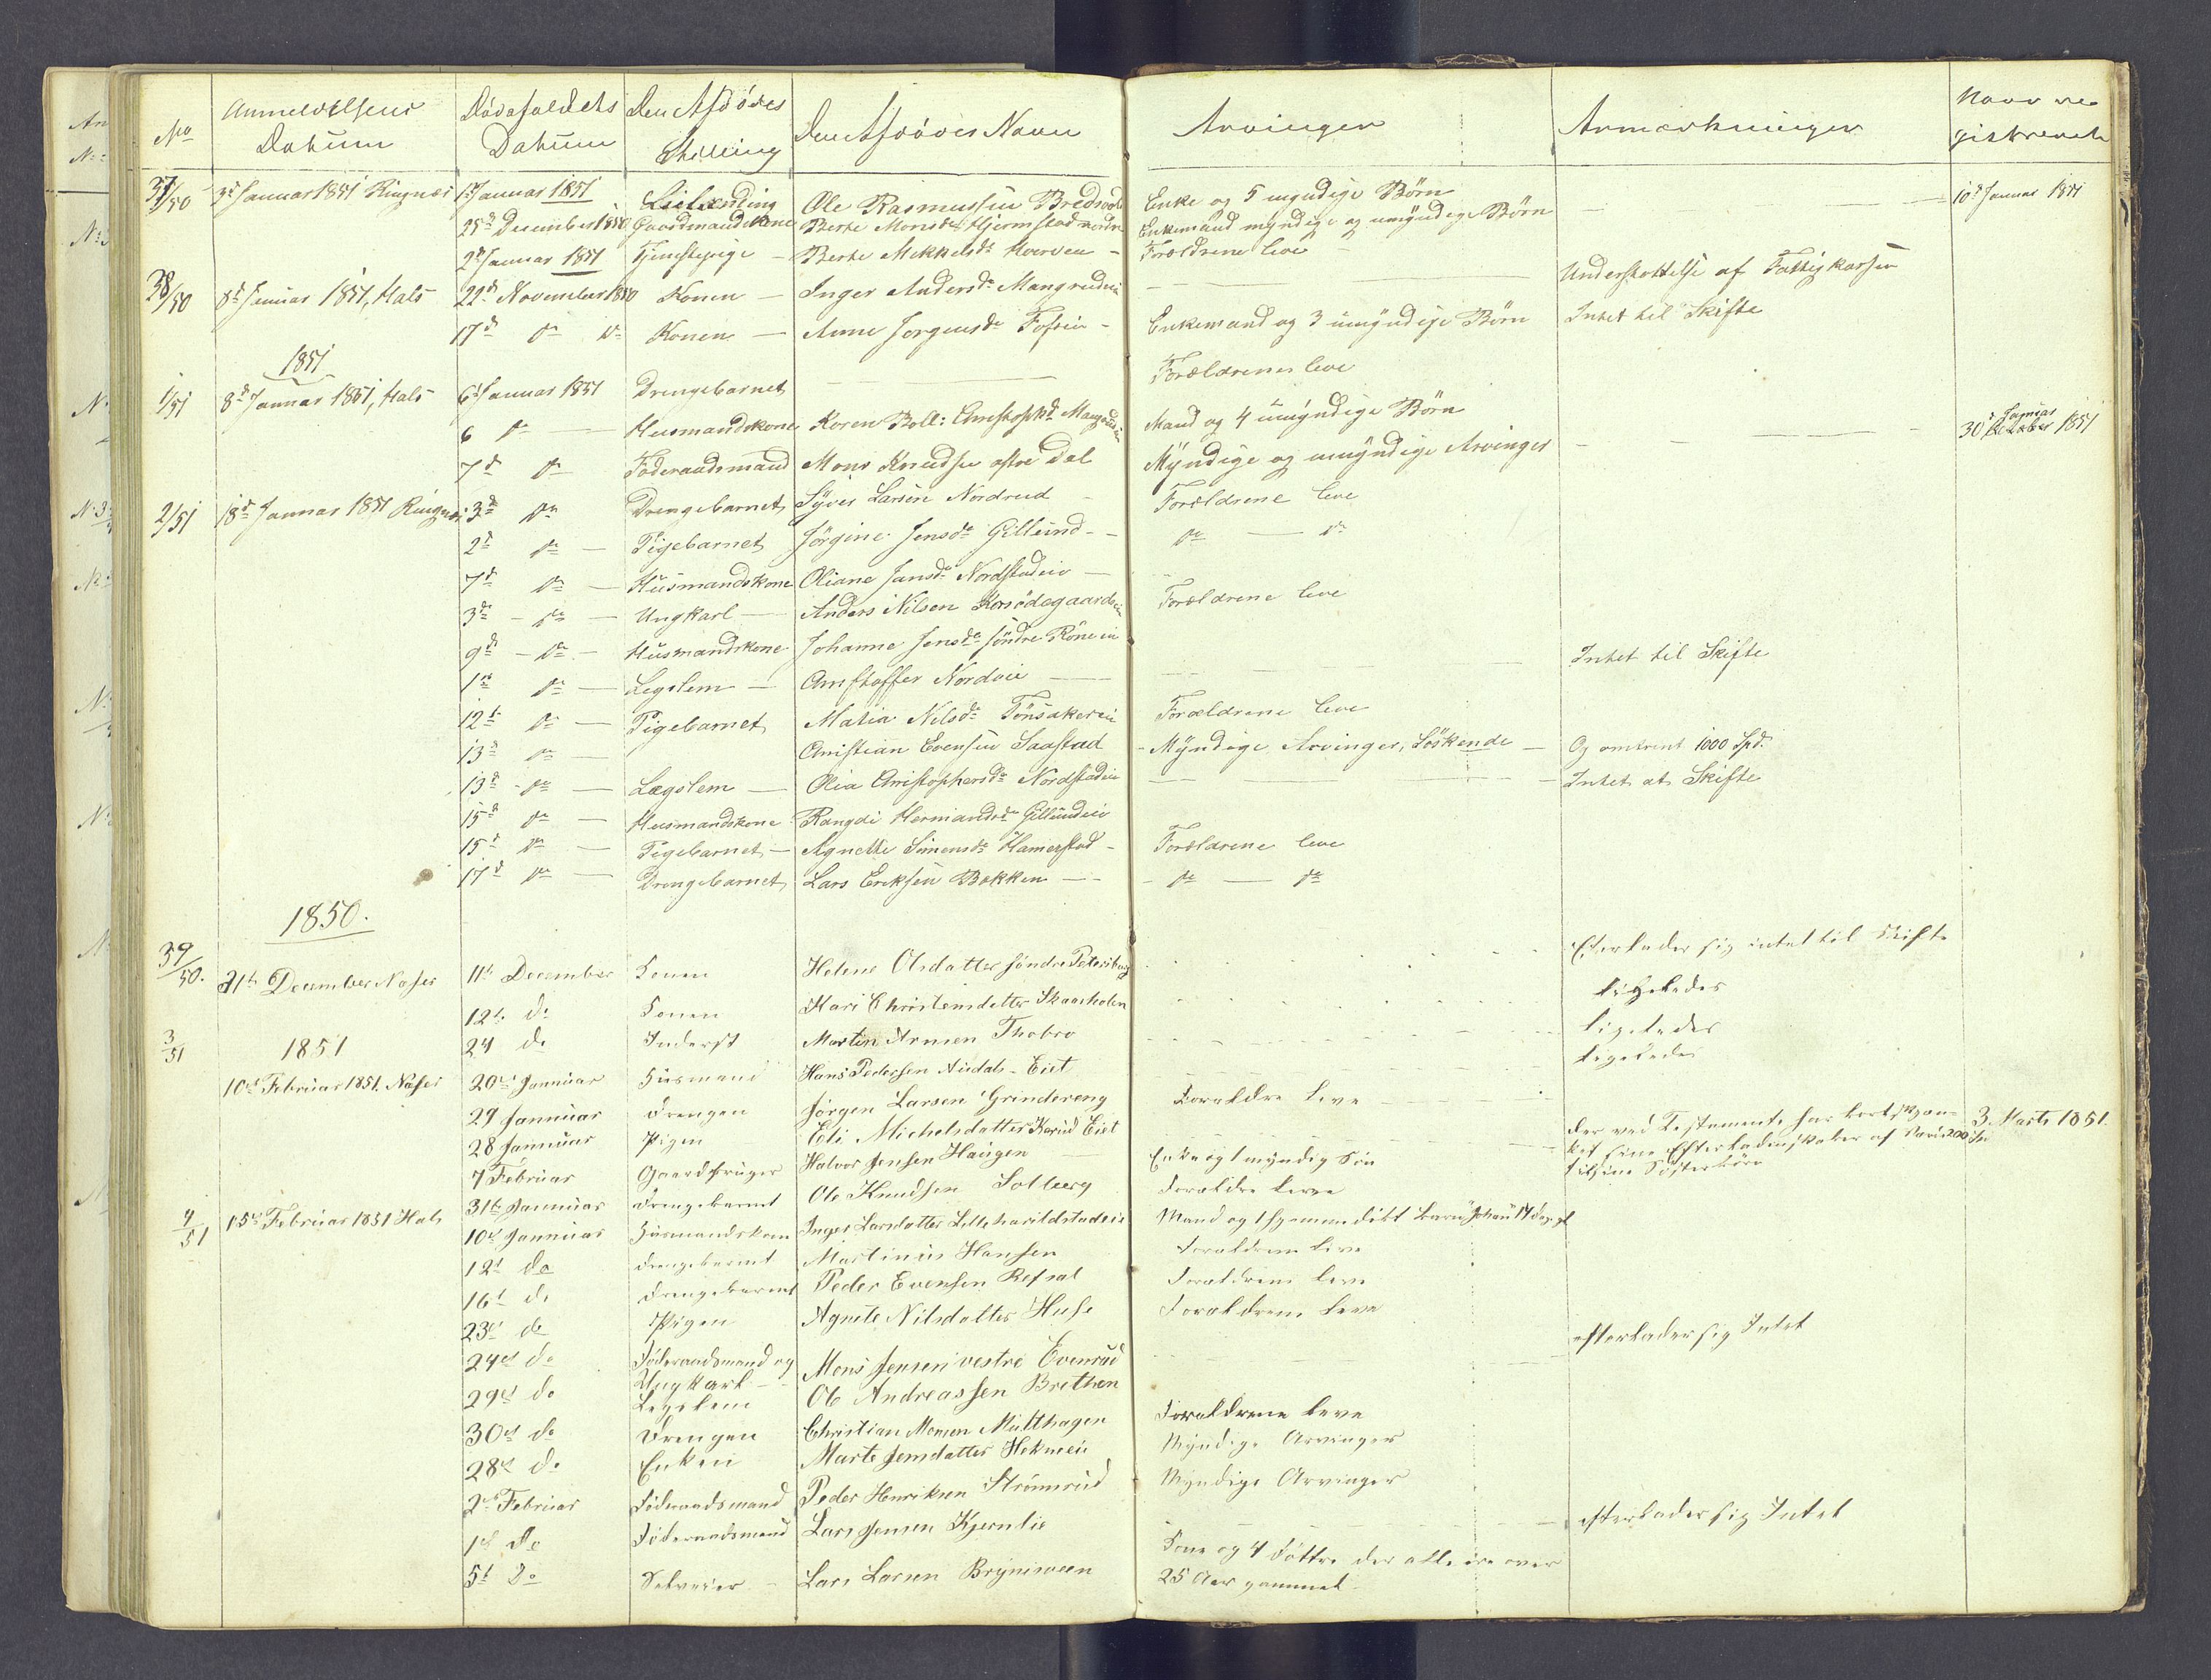 No Anmeldelsens Datum Dødsfaldets Datum Den Afdødes Stilling Den Afdødes Navn Arvinger Anmærkninger Naar registreret
37/50 3d Januar 1851 Ringnæs 1d Januar 1851 Ole Rasmussen Enke og 5 umyndige Børn 10d Januar 1851
25d December 1850 Gaardmandskone Berte Monsdr Hjermstad nordre Enkemand myndige og umyndige Børn
2d Januar 1851 Tjenstepige Berte Mikkelsdr Kverven Forældrene leve
38/50 8d Januar 1851, Hals 22d November 1850 Konen Inger Andersdr Mangrudeie Understøttelse af Fattigkassen
17d do do Konen Anne Jørgensdr Enkemand og 3 umyndige Børn Intet til Skifte
1851
1/51 8d Januar 1851, Hals 6d Januar 1851 Drengebarnet Forældrene leve
6 do Husmandskone Karen Boll: Christophdr Mand og 4 umyndige Børn
7d do Føderaadsmand Mons Knudsen østre Dal Myndige og umyndige Arvinger 30d Januar 1851
2/51 18d Januar 1851 Ringnæs 3d do Drengebarnet Syver Larsen Nordrud Forældrene leve
2d do Pigebarnet Jørgine Jensdr Gillund do do
7d do Husmandskone Oliane Jansdr Nordstadeie
3d do Ungkarl Anders Nilsen Korsødegaardseie Forældrene leve
9d do Husmandskone Johanne Jensdr søndre Røne eie Intet til Skifte
1d do Legslem Christoffer Nordeie
12t do Pigebarnet Matia Nilsdr Tønsakereie Forældrene leve
13d do Christian Evensen Saastad Myndige Arvinger, Søskende Og omtrent 1000 Spd.
13d do Lægslem Olia Christophersdr Nordstadeie Intet at Skifte
15d do Husmandskone Rangdi Hermandsdr Gillundeie
15d do Pigebarnet Agnette Simensdr Hamerstad Forældrene leve
17d do Drengebarnet Lars Eriksen Bakken do do
1850.
39/50. 31te December Næsses 11te December Konen Helene Olsdatter søndre Petersborg Efterlader sig intet til Skifte
12te do Konen Kari Christensdatter Skaarholen ligeledes
3/51 1851 24 do Inderst Martin Arnsen Thobro ligeledes
10de Februar 1851. Næsses 20de Januar Husmand Hans Pedersen Audals-Eiet ligeledes
29 Januar Drengen Jørgen Larsen Grindereng Forældre leve
28 Januar Pigen Eli Michelsdatter Korud Eiet der ved Testamente har bortskjæn- 3. Marts 1851.
7 Februar Gaardbruger Halvor Jensen Haugen Enke og 1 myndig Søn ket sine Efterladenskaber af Værdi 200 Spd
31te Januar Drengebarnet Ole Knudsen Solberg Forældre leve til sine Søsterbørn
4/51 15de Februar 1851 Hals 10de Januar Husmandskone Inger Larsdatter Lilleharildstadeie Mand og 1 Barn Johan 14 Dage gl
12te do Drengebarnet Martinus Hansen Forældrene leve
16te do Drengebarnet Peder Evensen Refsal Forældrene leve
23de do Pigen Agnete Nilsdatter Huse Forældrene leve
24de do Føderaadsmand og Mons Jensen vestre Evenrud efterlader sig Intet
Ungkarl
29de do Legslem Ole Andreassen Brethen
30de do Drengen Christian Monsen Multhagen Forældrene leve
28de do Enken Marte Jensdatter Myndige Arvinger
2den Februar Føderaadsmand Peder Henriksen Strømsrud Myndige Arvinger
1ste do Føderaadsmand Lars Jensen Kjernlie efterlader sig Intet
5te do Selveier Lars Larsen Brynisveen Kone og 4 Døttre der alle ere over
25 Aar gammel